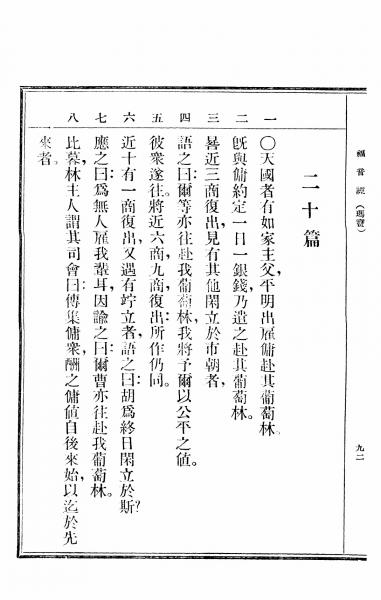 福音經（瑪竇）
九二
二十篇
一 〇天國者有如家主父，平明出雇傭赴其葡萄林。
二 旣與傭約定一日一銀錢，乃遣之赴其葡萄林。
三 暑近三商復出，見有其他閑立於市朝者，
四 語之曰：爾等亦往赴我葡萄林，我將予爾以公平之値。
五 彼衆遂往，將近六商九商復出，所作仍同。
六 近十有一商復出，又遇有竚立者，語之曰：胡爲終日閑立於斯？
七 應之曰：爲無人雇我輩耳，因諭之曰：爾曹亦往赴我葡萄林。
八 比暮，林主人謂其司會曰：傳集傭衆，酬之傭値，自後來始，以迄於先
來者。